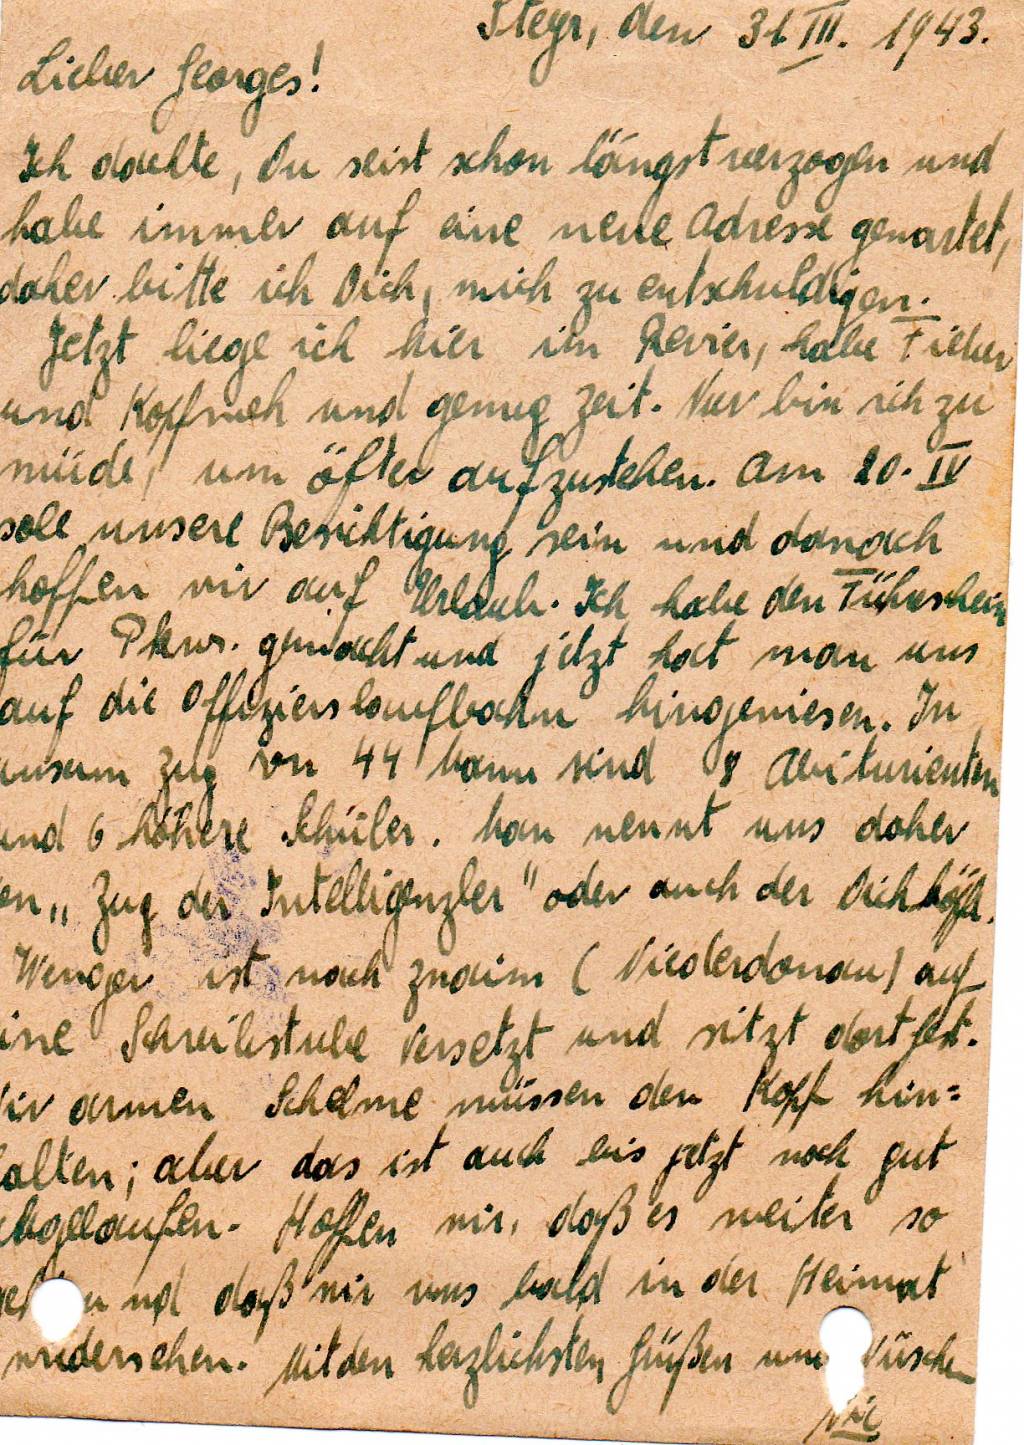 Steyr, den 31. III. 1943.
Lieber Georges!
Ich dachte, Du seist schon längst verzogen und
habe immer auf eine neue Adresse gewartet,
daher bitte ich Dich, mich zu entschuldigen.
Jetzt liege ich hier im Revier, habe Fieber
und Kopfweh und genug Zeit. Nur bin ich zu
müde, um öfter aufzustehen. Am 20. IV
soll unsere Besichtigung sein und danach
hoffen wir auf Urlaub. Ich habe den Führschein
für Pkws. gemacht und jetzt hat man uns
auf die Offizierslaufbahn hingewiesen. In
unserm Zug von 44 Mann sind 8 Abiturienten
und 6 höhere Schüler. Man nennt uns daher
den „Zug der Intelligenzler" oder auch der
Wenger ist nach Znaim (Niederdonau) auf
eine Schreibstube versetzt und sitzt dort fest.
Wir armen Schelme müssen den Kopf hin=
halten; aber das ist auch bis jetzt noch gut
abgelaufen. Hoffen wir, daß es weiter so
und daß wir uns bald in der Heimat
wiedersehen. Mit den herzlichsten Grüßen und